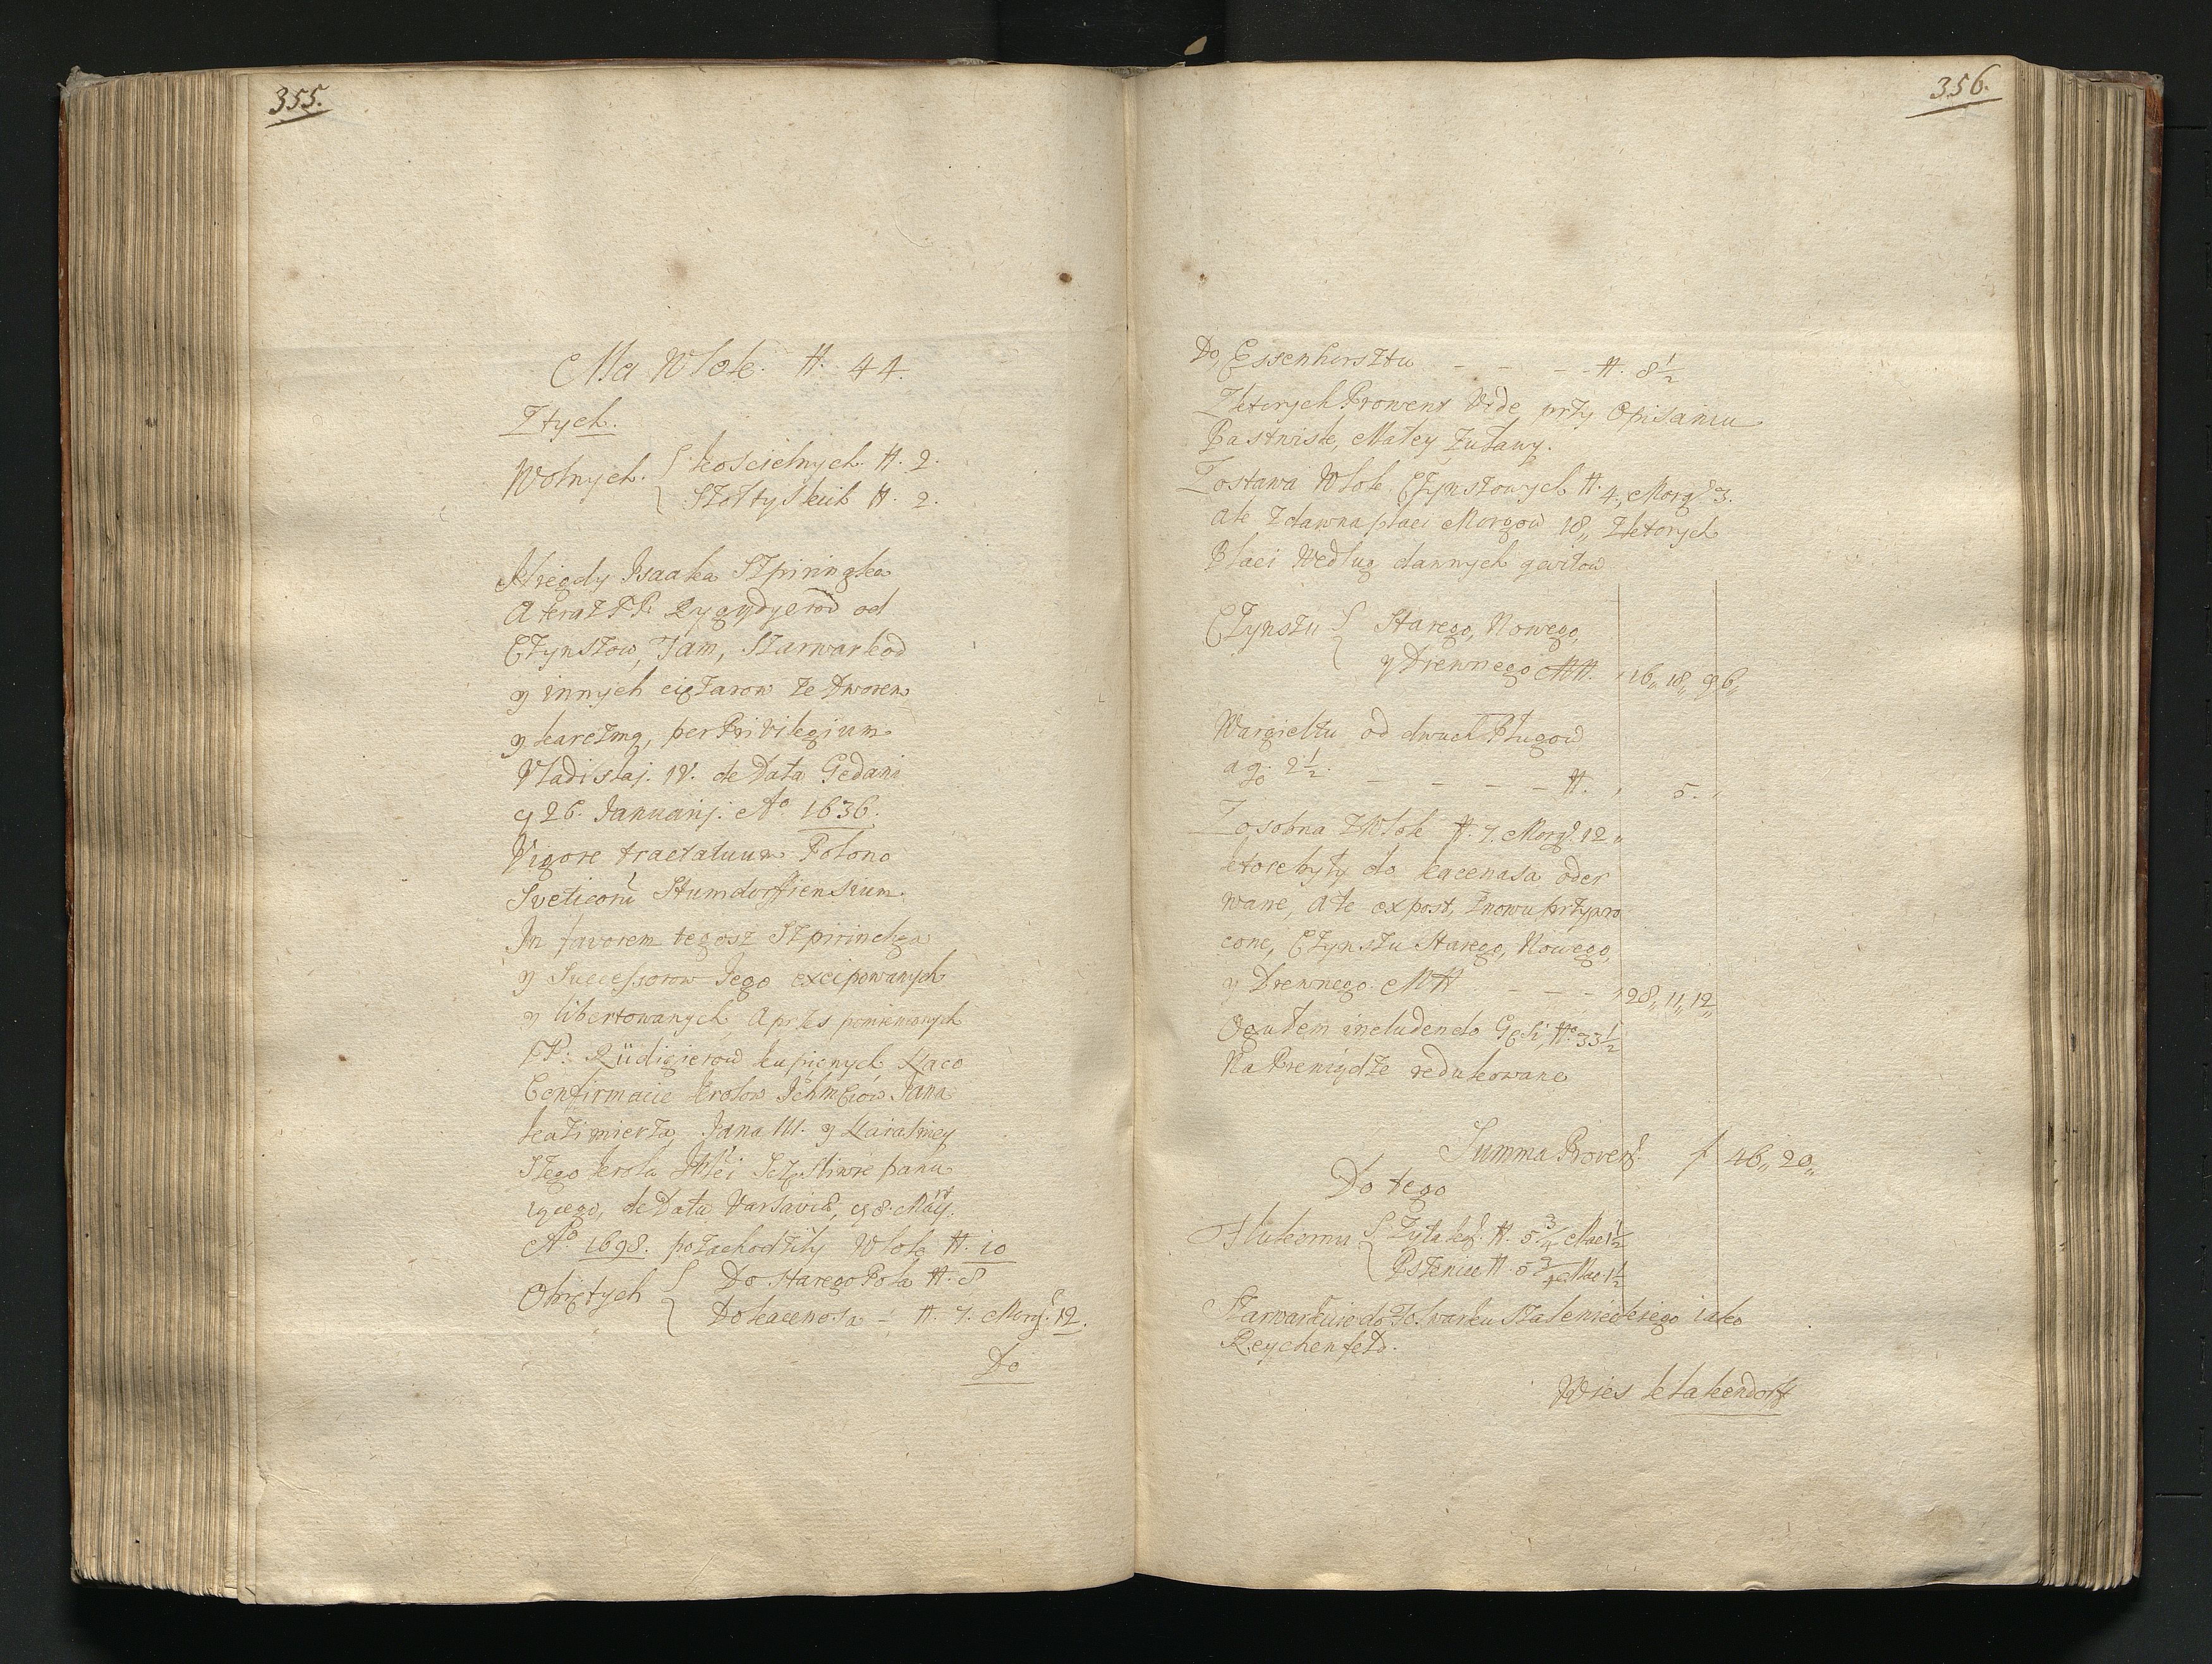 355.
Ma Wlok. # 44.
Z tych.
Wolnych. { kościelnych # 2.
Szołtyskich # 2.
Kiegdy Isaaka Szpiringka
A teraz PP. Rygydyerow od
Czynszow, Jam, Szarwarkow
y innych ciężarow ze Dworem
y karczmą, per Privilegium
Vladislaj. IV. de Data Gedani
g 26. Januarij. Ao 1636.
Vigore tractatuum Polono
Sveticorū Stumdorffiensium.
In favorem tegosz Szpirinckga
y Successorow Jego excipowanych
y libertowanych, A przes pomienionych
PP: Rüdigierow kupionych Iaco
Confirmacie krolow Ichmściow Jana
kazimierza, Jana III. y
Szego krola JMści Sczęsliwie panu
iącego, de Data Varsaviæ, g 8. Maij.
Ao 1698. pozachodziły Wlok # 10
Obiętych { Do Starego Pola # 8
Do kacenosa - # 7. Morg. 12.
Do
356.
Do, Essenhorsztu - - - # 8 1/2
Zktorych Prowent Vide, przy Opisaniu
Pastwisk, Małey Żuławy.
Zostawa Wlok Czynszowych # 4, Morg 3.
Ale zdawna płaci Morgow 18,, Zktorych
Płaci Według dawnych qwitow
Czynszu { Starego, Nowego,
y Drewnego M#. 16,, 18,, 9 6,,
Wargieltu od dwuch Pługow
a g. 2 1/2. - - - - #. 5.
Zosobna zWlok #. 7. Morg. 12,,
ktore były do kacenasa oder
wane, Ale expost, znowu przywro
cone, Czynszu Starego, Nowego,
y Drewnego. M# - - - 28,, 11,, 12,,
Ogułem includendo Gęsi, No 33 1/2
Na Pieniądze redukowane
Summa Provent. f 46,, 20,,
Do tego
Hukornu { Żyta kor. # 5 3/4 Mac 1 1/2
Pszenice # 5 3/4 Mac 1 1/2
Szarwarkuie do Folwarku Szaleniedkiego iako
Reychenfeld.
Wies klakendorff